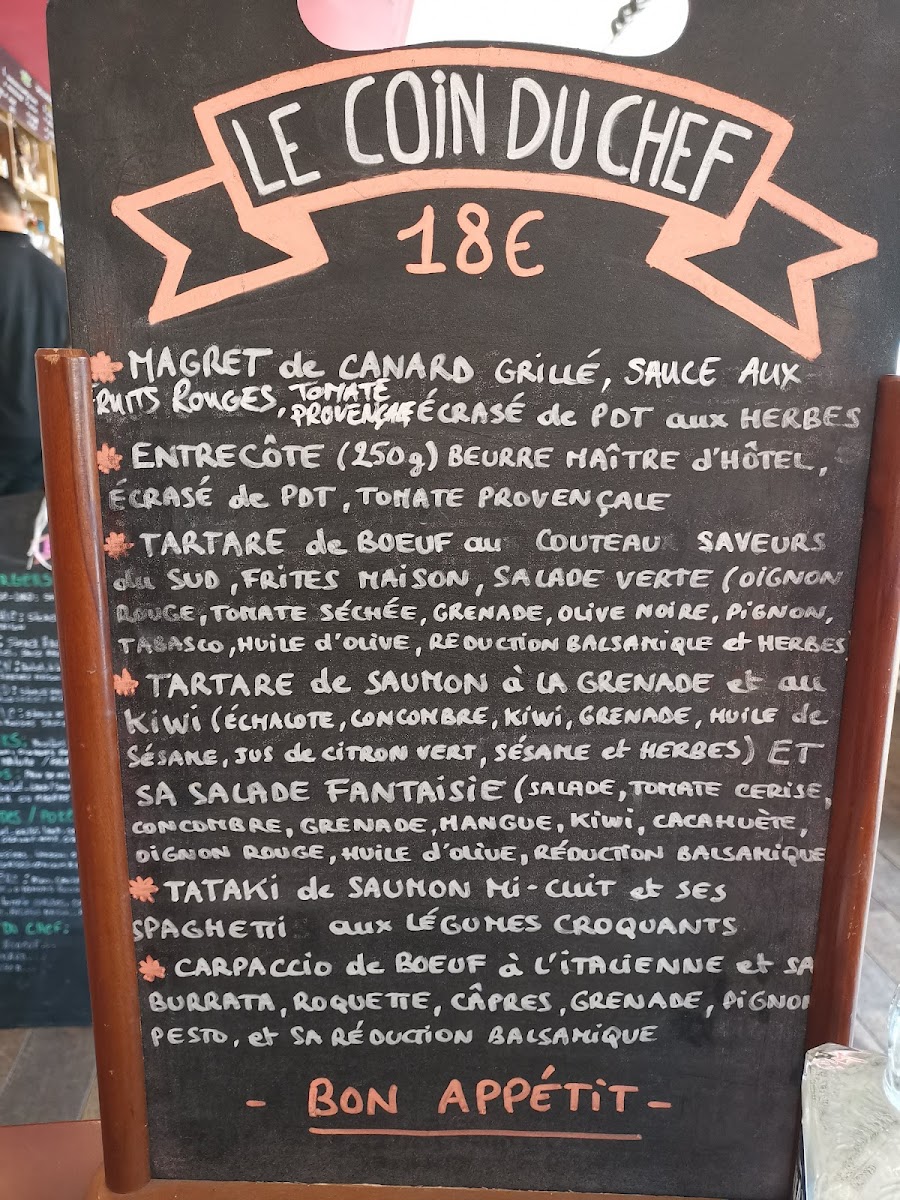 LE COIN DU CHEF
18€
MAGRET de CANARD GRILLÉ, SAUCE AUX
FRUITS ROUGES, TOMATE PROVENÇALE ÉCRASÉ de PDT aux HERBES
ENTRECÔTE (250g) BEURRE MAÎTRE d'HÔTEL,
ÉCRASÉ de PDT, TOMATE PROVENÇALE
TARTARE de BOEUF au COUTEAU SAVEURS
du SUD, FRITES MAISON, SALADE VERTE (OIGNON
ROUGE, TOMATE SÉCHÉE, GRENADE, OLIVE NOIRE, PIGNON,
TABASCO, HUILE d'OLIVE, REDUCTION BALSAMIQUE et HERBES
TARTARE de SAUMON à LA GRENADE et au
KIWI (ÉCHALOTE, CONCOMBRE, KIWI, GRENADE, HUILE de
SÉSAME, JUS de CITRON VERT, SÉSAME et HERBES) ET
SA SALADE FANTAISIE (SALADE, TOMATE CERISE,
CONCOMBRE, GRENADE, MANGUE, KIWI, CACAHUÈTE,
OIGNON ROUGE, HUILE d'OLIVE, RÉDUCTION BALSAMIQUE
TATAKI de SAUMON MI-CUIT et SES
SPAGHETTI aux LÉGUMES CROQUANTS
CARPACCIO de BOEUF à L'ITALIENNE et SA
BURRATA, ROQUETTE, CÂPRES, GRENADE, PIGNON
PESTO, et SA RÉDUCTION BALSAMIQUE
- BON APPÉTIT -
DU CHEF: